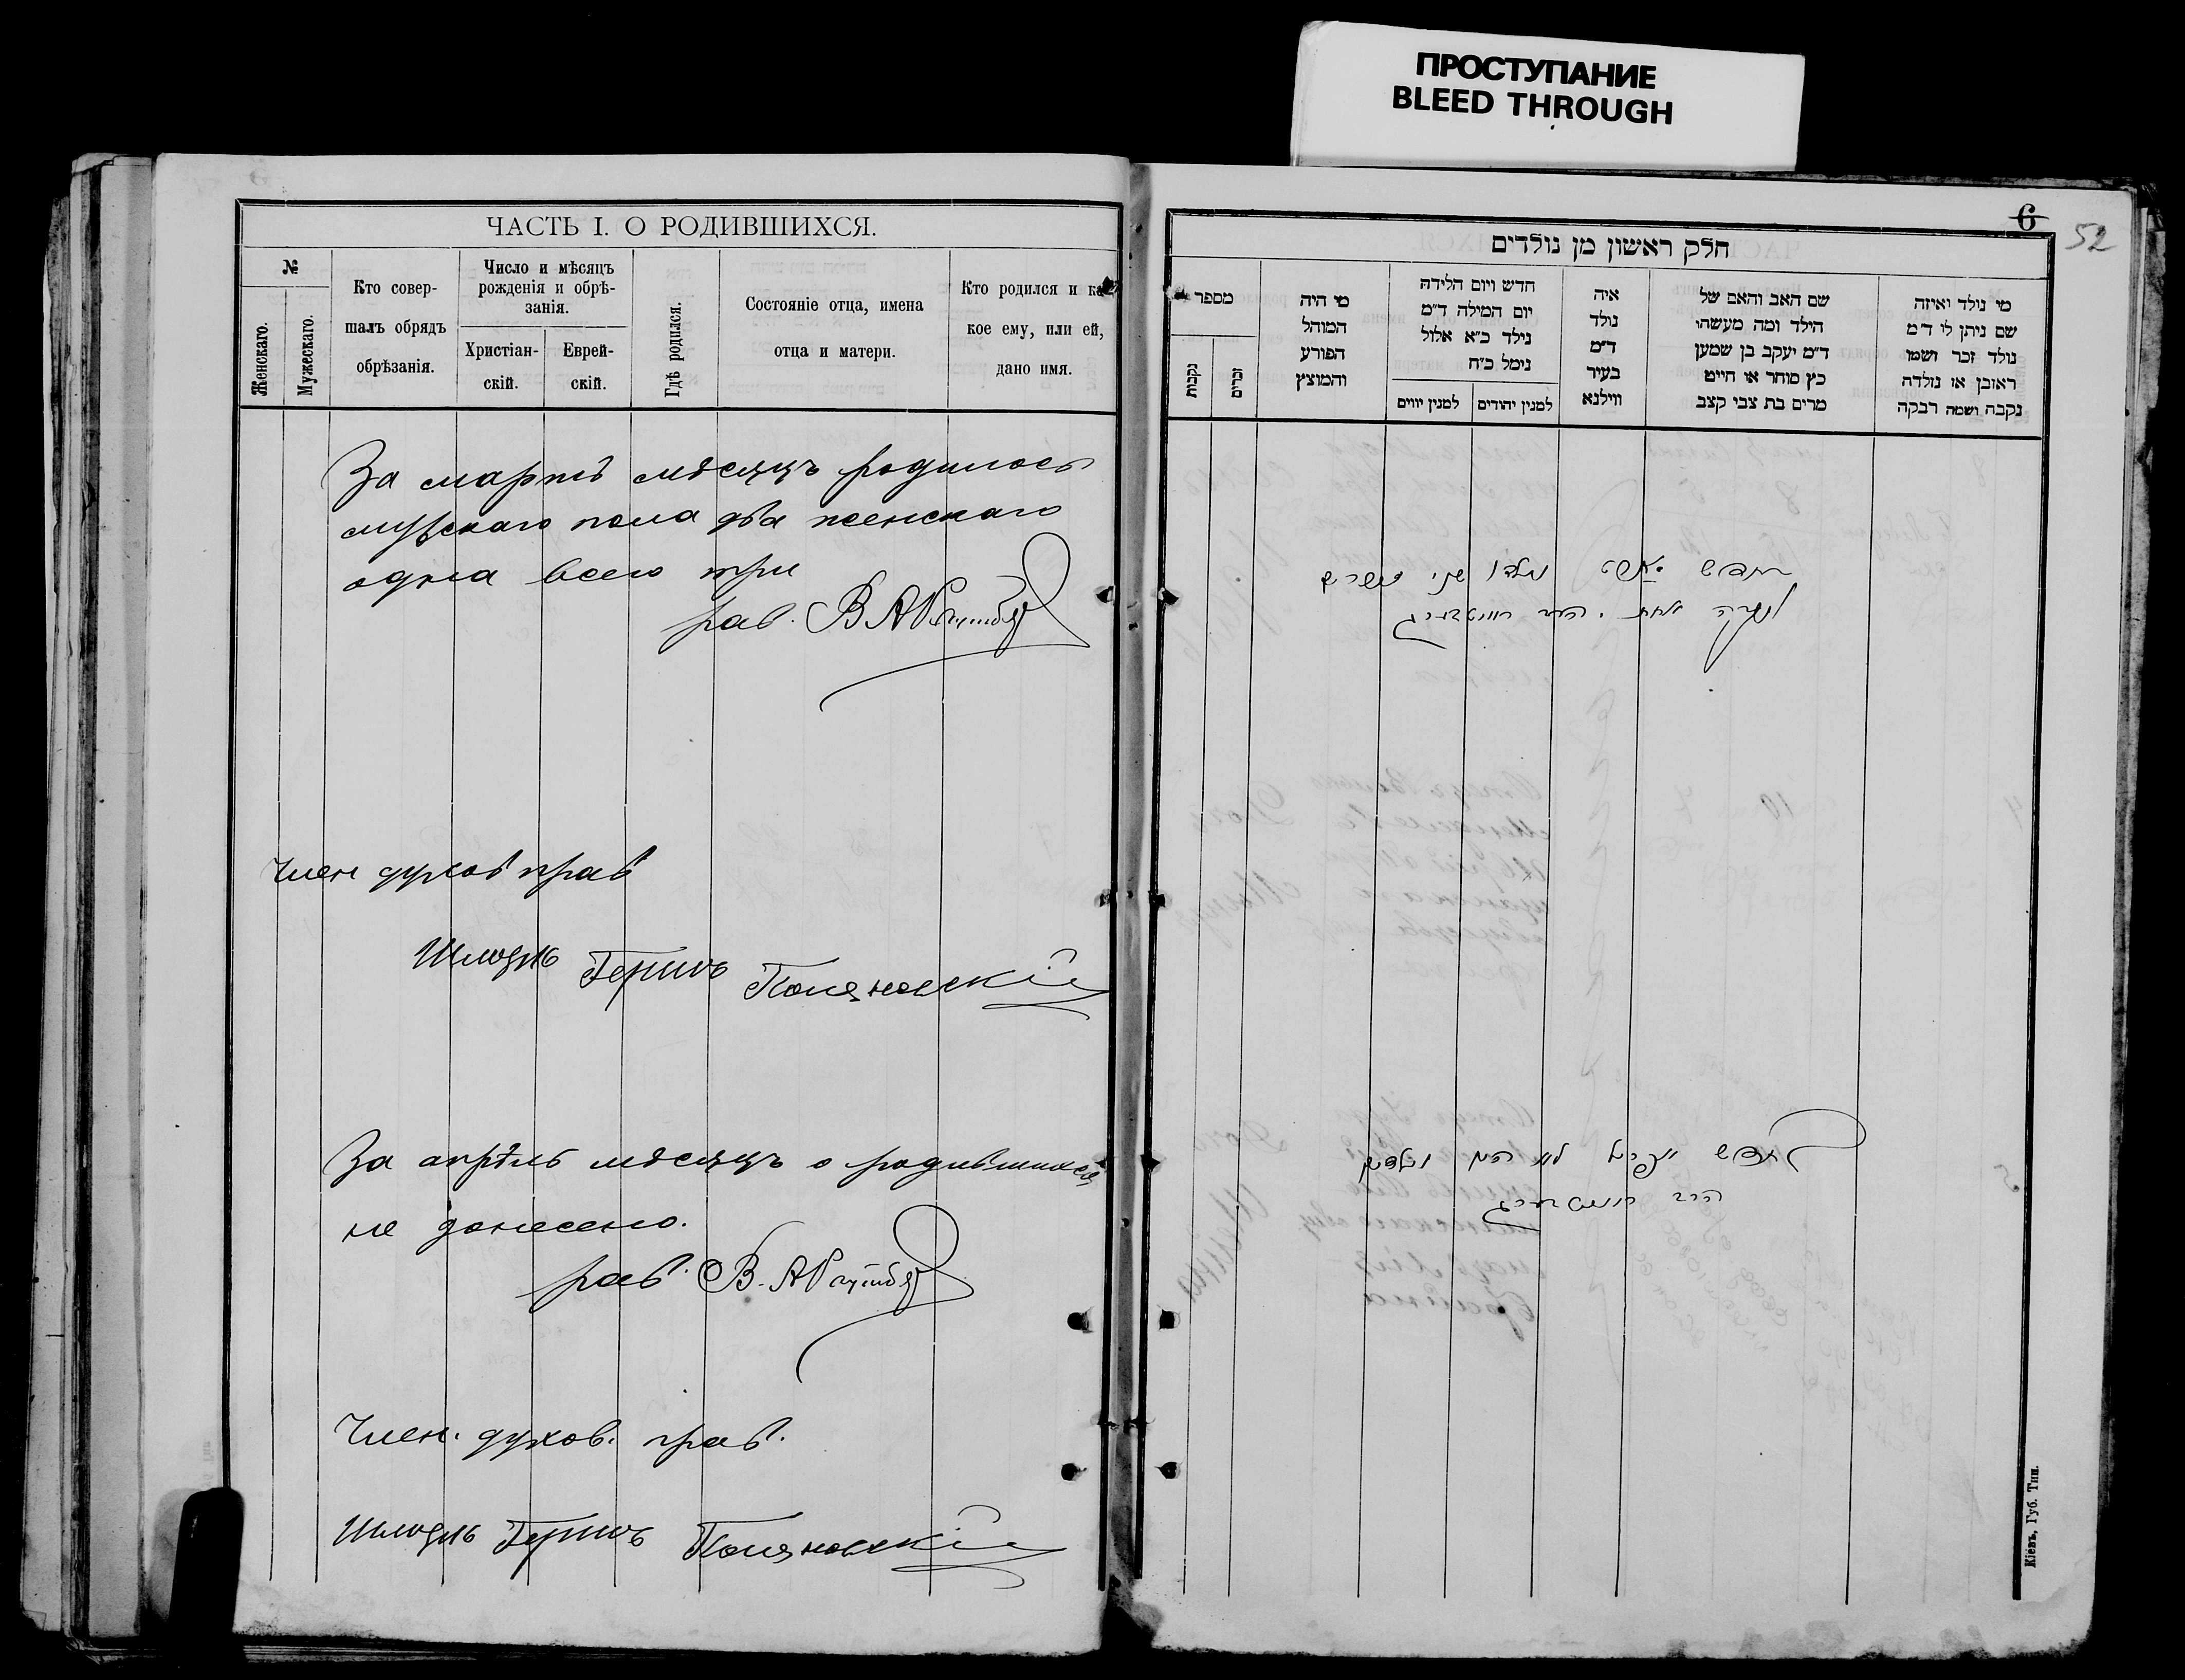 ПРОСТУПАНИЕ
BLEED THROUGH
ЧАСТЬ I. О РОДИВШИХСЯ.
№
Женскаго.
Мужескаго.
Кто совер-
шалъ обрядъ
обрѣзанія.
Число и мѣсяцъ
рожденія и обрѣ-
занія.
Христіан-
скій.
Еврей-
скій.
Гдѣ родился.
Состояніе отца, имена
отца и матери.
Кто родился и ка-
кое ему, или ей,
дано имя.
За мартъ мѣсяцъ родилось
мужскаго пола два женскаго
одна всего три
рав. В А
Член духов прав
Шморль Гершъ Поляновскій
За апрѣль мѣсяцъ о родившихся
не донесено.
рав. В. А
Член. духов. прав.
Шморль Гершъ Поляновскій
6
52
חלק ראשון מן נולדים
מספר
נקבות
זכרים
מי היה
המוהל
הפורע
והמוצץ
חדש ויום הלידה
יום המילה ד״מ
נילד כ״א אלול
נימל כ״ח
למנין יווים
למנין יהודים
איה
נולד
ד״מ
בעיר
ווילנא
שם האב והאם של
הילד ומה מעשהו
ד״מ יעקב בן שמען
כץ סוחר או חייט
מרים בת צבי קצב
מי נולד ואיזה
שם ניתן לי ד״מ
נולד זכר ושמו
ראובן או נולדה
נקבה ושמה רבקה
בחדש נולדו שני
אחת הרב
בחדש לא
הרב
Кіевъ, Губ. Тип.